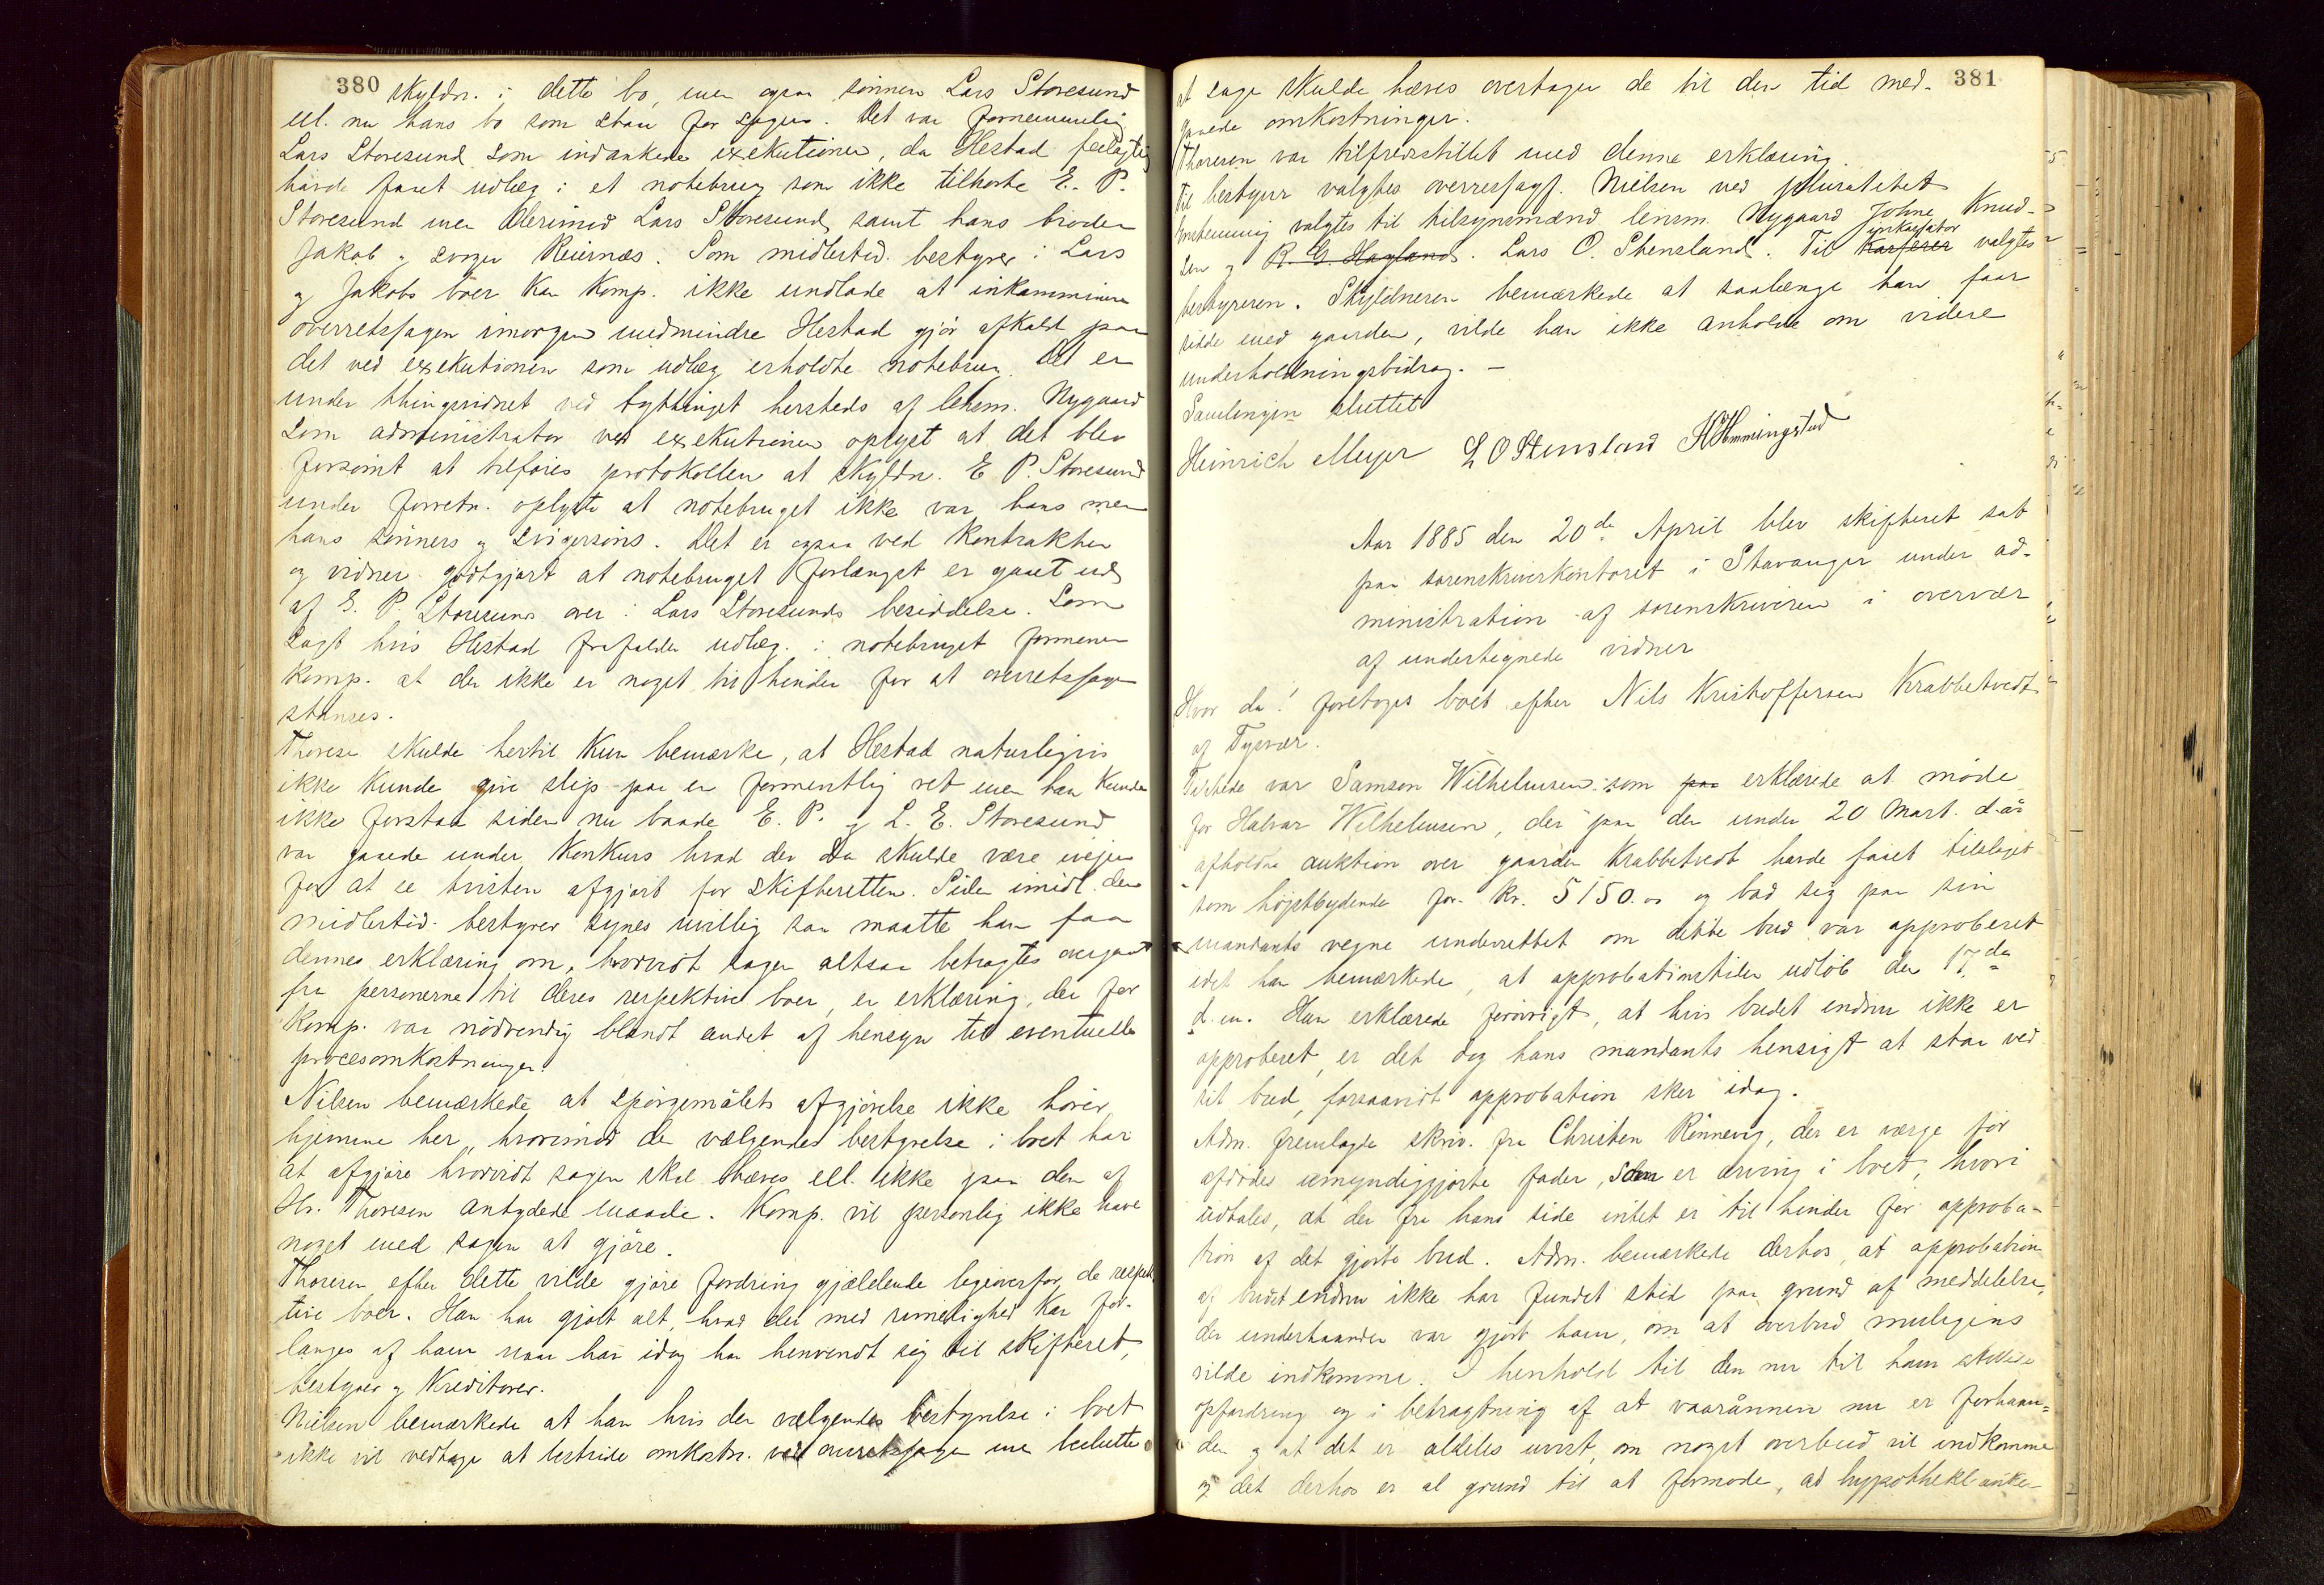 380
skyldn. i dette bo, men ogsaa sönnen Lars Storesund
ell. nu hans bo som staar for sagen. Det var fornemmelig
Lars Storesund som indankede exekutionen, da Hestad feilagtig
havde faaet udlæg i et notebrug som ikke tilhörte E. P.
Storesund men derimod Lars Storesund samt hans broder
Jakob og svoger Reiernæs. Som midlertid. bestyrer i Lars
og Jakobs boer kan Komp. ikke undlade at inkamminere
overretssagen imorgen medmindre Hestad gjör afkald paa
det ved exekutionen som udlæg erholdte notebrug. Det er
under thingsvidnet ved bythinget hersteds af lensm. Nygaard
som administrator ved exekutionen oplyst at det blev
forsömt at tilföres protokollen at skyldn. E P. Storesund
under forretn. oplyste at notebruget ikke var hans men
hans sönners og svigersöns. Det er ogsaa ved kontrakten
og vidner godtgjort at notebruget forlængst er gaaet ud
af E. P. Storesunds over i Lars Storesunds besiddelse. Som
sagt hvis Hestad frafalder udlæg. i notebruget formener
Komp. at der ikke er noget til hinder for at overretssagen
stanses.
Thoresen skulde hertil kun bemærke, at Hestad naturligvis
ikke kunde give slip paa en formentlig ret men han kunde
ikke forstaa siden nu baade E. P. og L. E. Storesund
var gaaede under Konkurs hvad der da skulde være iveien
for at se tvisten afgjort for skifteretten. Siden imidl. den
midlertid. bestyrer synes uvillig saa maatte han faa
dennes erklæring om, hvorvidt sagen altsaa betragtes overgaaet
fra personerne til deres respektive boer, en erklæring, der for
Komp. var nödvendig blandt andet af hensyn til eventuelle
procesomkostninger.
Nilsen bemærkede, at spörgsmålets afgjörelse ikke hörer
hjemme her, hvorimod den vælgendes bestyrelse i boet har
at afgjöre hvorvidt sagen skal hæves ell. ikke paa den af
Hr. Thoresen antydede maade. Komp. vil personlig ikke have
noget med sagen at gjöre.
Thoresen efter dette vilde gjöre fordring gjældende ligeoverfor de respek-
tive boer. Han har gjort alt, hvad der med rimelighed kan for-
langes af ham naar han idag har henvendt sig til skifteret,
bestyrer og Kreditorer.
Nielsen bemærkede at han hvis den vælgendes bestyrelse i boet
ikke vil vedtage at bestride omkostn. ved overretssagen men beslutte
381
at sage skulde hæves overtager de til den tid med-
gaaede omkostninger.
Thoresen var tilfredsstillet med denne erklæring.
Til bestyrer valgtes overretssagf. Nielsen ved pluralitet
Enstemmig valgtes til tilsynsmænd lensm. Nygaard Johne Knud-
sen og R. G. Hagland. Lars O. Stensland. Til Kasserer inkassator valgtes
bestyreren. Skyldneren bemærkede at saalænge han faar
sidde med gaarden, vilde han ikke anholde om videre
underholdningsbidrag. –
Samlingen sluttet
Heinrich Meyer L O Stensland H Hemmingstad
Aar 1885 den 20de April blev skifteret sat
paa sorenskriverkontoret i Stavanger under ad-
ministration af sorenskriveren i overvær
af undertegnede vidner
Hvor da! foretoges boet efter Nils Kristoffersen Krabbetvedt
af Tysvær.
Tilstede var Samson Wilhelmsen som paa erklærede at möde
for Halvar Wilhelmsen, der paa den under 20 Mart. d. år
afholdte auktion over gaarden Krabbetvedt havde faaet tilslaget
som höistbydende for kr. 5150.00 og bad sig paa sin
mandants vegne underrettet om dette bud var approberet
idet han bemærkede, at approbationstiden udlöb den 17de
d. m. Han erklærede forövrigt, at hvis budet endnu ikke er
approberet, er det dog hans mandants hensigt at staa ved
sit bud, forsaavidt approbation sker idag.
Adm. fremlagde skriv. fra Christen Rönnevig, der er værge for
afdödes umyndiggjorte fader, som er arving i boet, hvori
udtales, at der fra hans side intet er til hinder for approba-
tion af det gjorte bud. Adm. bemærkede derhos, at approbation
af budet endnu ikke har fundet sted paa grund af meddelelse,
der underhaanden var gjort ham, om at overbud muligens
vilde indkomme. I henhold til den nu til ham stillede
opfordring og i betragtning af at vaarånnen nu er forhaan-
den og at det er aldeles uvist, om noget overbud vil indkomme
og det derhos er al grund til at formode, at hypothekbanke-